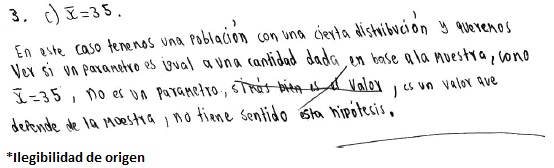 3. c) x̄=35.
En este caso tenemos una población con una cierta distribución y queremos
Ver si un parametro es igual a una cantidad dada en base a la muestra, como
x̄=35, no es un parametro, sinás bien es el valor, es un valor que
depende de la muestra, no tiene sentido esta hipótesis.
*Ilegibilidad de origen